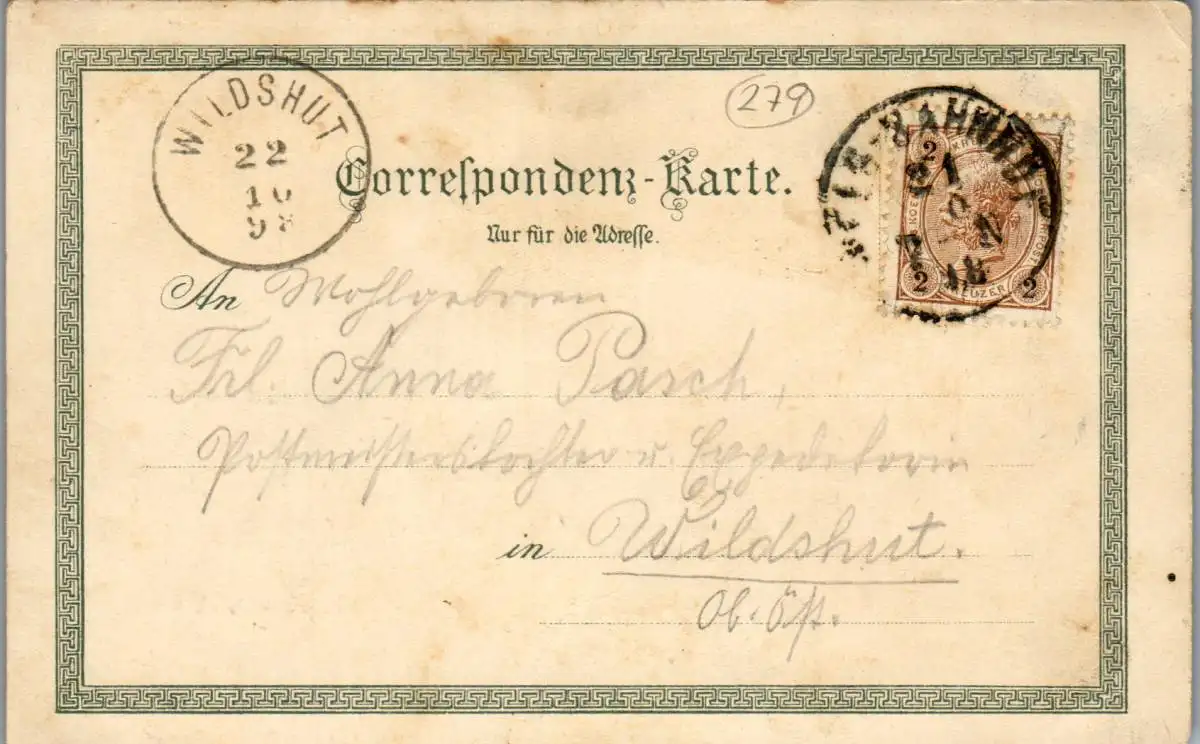 WILDSHUT
22
10
279
2 2 2
Correspondenz-Karte.
Nur für die Adresse.
An Wohlgeboren
Frl. Anna Pasch,
Postmeisterstochter u. Expeditorin
in Wildshut.
Ob. Öst.